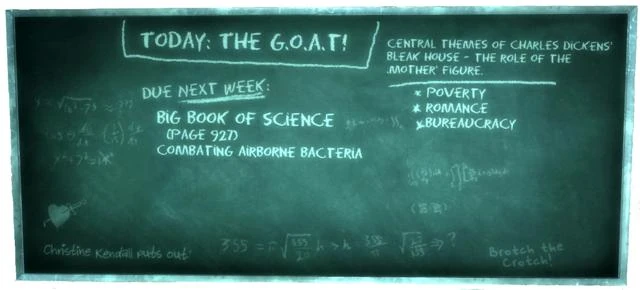 TODAY: THE G.O.A.T!
DUE NEXT WEEK:
BIG BOOK OF SCIENCE
(PAGE 927)
COMBATING AIRBORNE BACTERIA
CENTRAL THEMES OF CHARLES DICKENS'
BLEAK HOUSE - THE ROLE OF THE
'MOTHER' FIGURE.
* POVERTY
* ROMANCE
* BUREAUCRACY
Christine Kendall puts out'
Brotch the
Crotch!